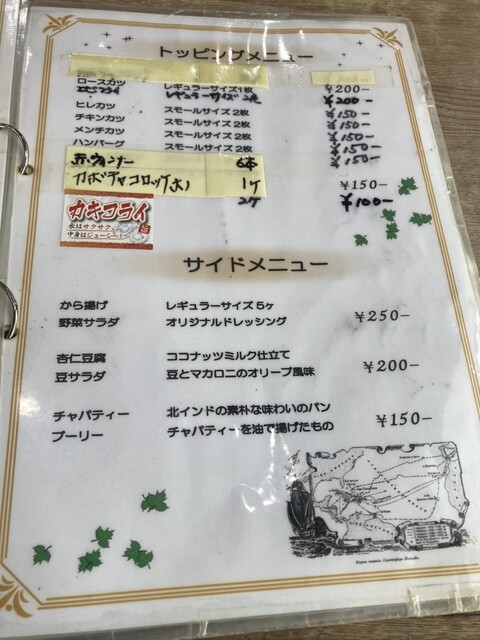 トッピングメニュー
ロースカツ レギュラーサイズ1枚 200-
エビフライ レギュラーサイズ 2本 ¥200-
ヒレカツ スモールサイズ2枚 ¥150-
チキンカツ スモールサイズ2枚 ¥150-
メンチカツ スモールサイズ2枚 ¥150-
ハンバーグ スモールサイズ2枚 ¥150-
赤ウインナー 6本
カボチャコロッケ 1ケ ¥150-
2ケ ¥100-
カキフライ
衣はサクサク
中身はジューシー
旨
サイドメニュー
から揚げ レギュラーサイズ5ヶ
野菜サラダ オリジナルドレッシング ¥250-
杏仁豆腐 ココナッツミルク仕立て
豆サラダ 豆とマカロニのオリーブ風味 ¥200-
チャパティー 北インドの素朴な味わいのパン
プーリー チャパティーを油で揚げたもの ¥150-